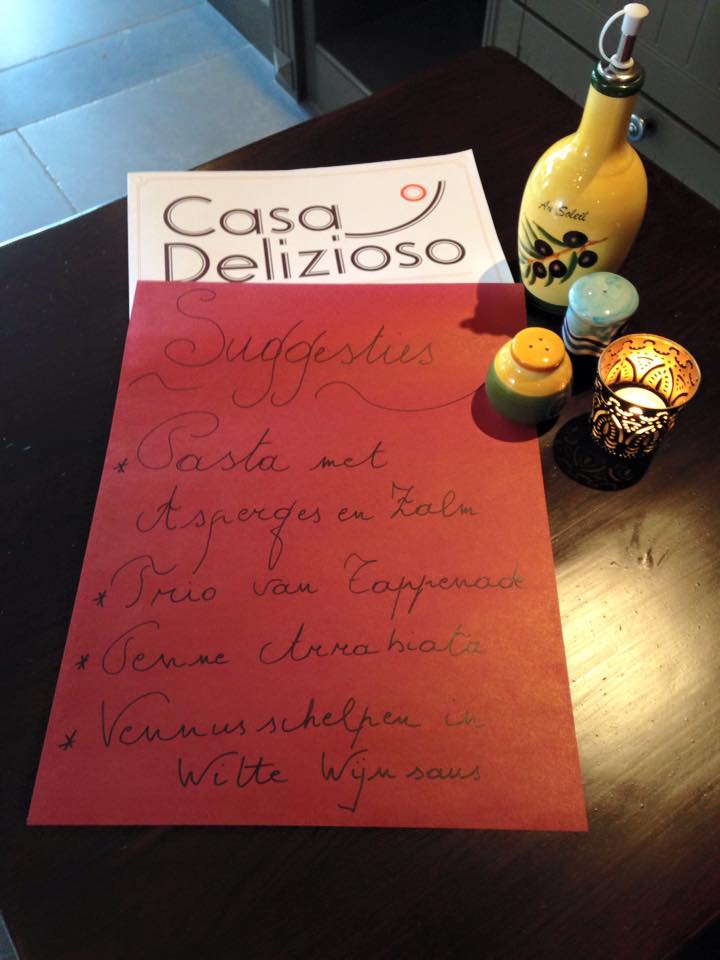 Casa
Delizioso
Au Soleil
Suggesties
* Pasta met
Asperges en Zalm
* Trio van Tappenade
* Penne Arrabiata
* Vennusschelpen in
Witte Wijnsaus